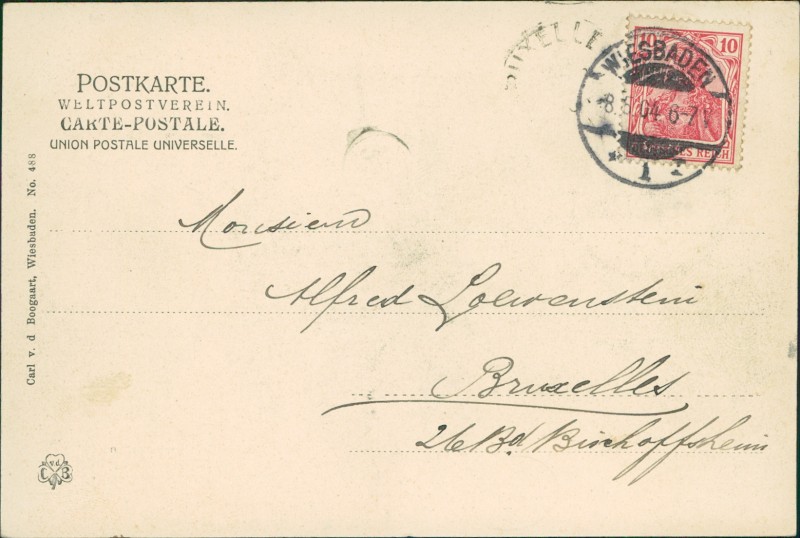 POSTKARTE.
WELTPOSTVEREIN.
CARTE-POSTALE.
UNION POSTALE UNIVERSELLE.
BRUXELLE
10 10
WIESBADEN
6-7
1
REICH
Monsieur
Alfred Loewenstein
Bruxelles
26 Bd. Bischoffsheim
Carl v. d Boogaart, Wiesbaden. No. 488
C v.d. B